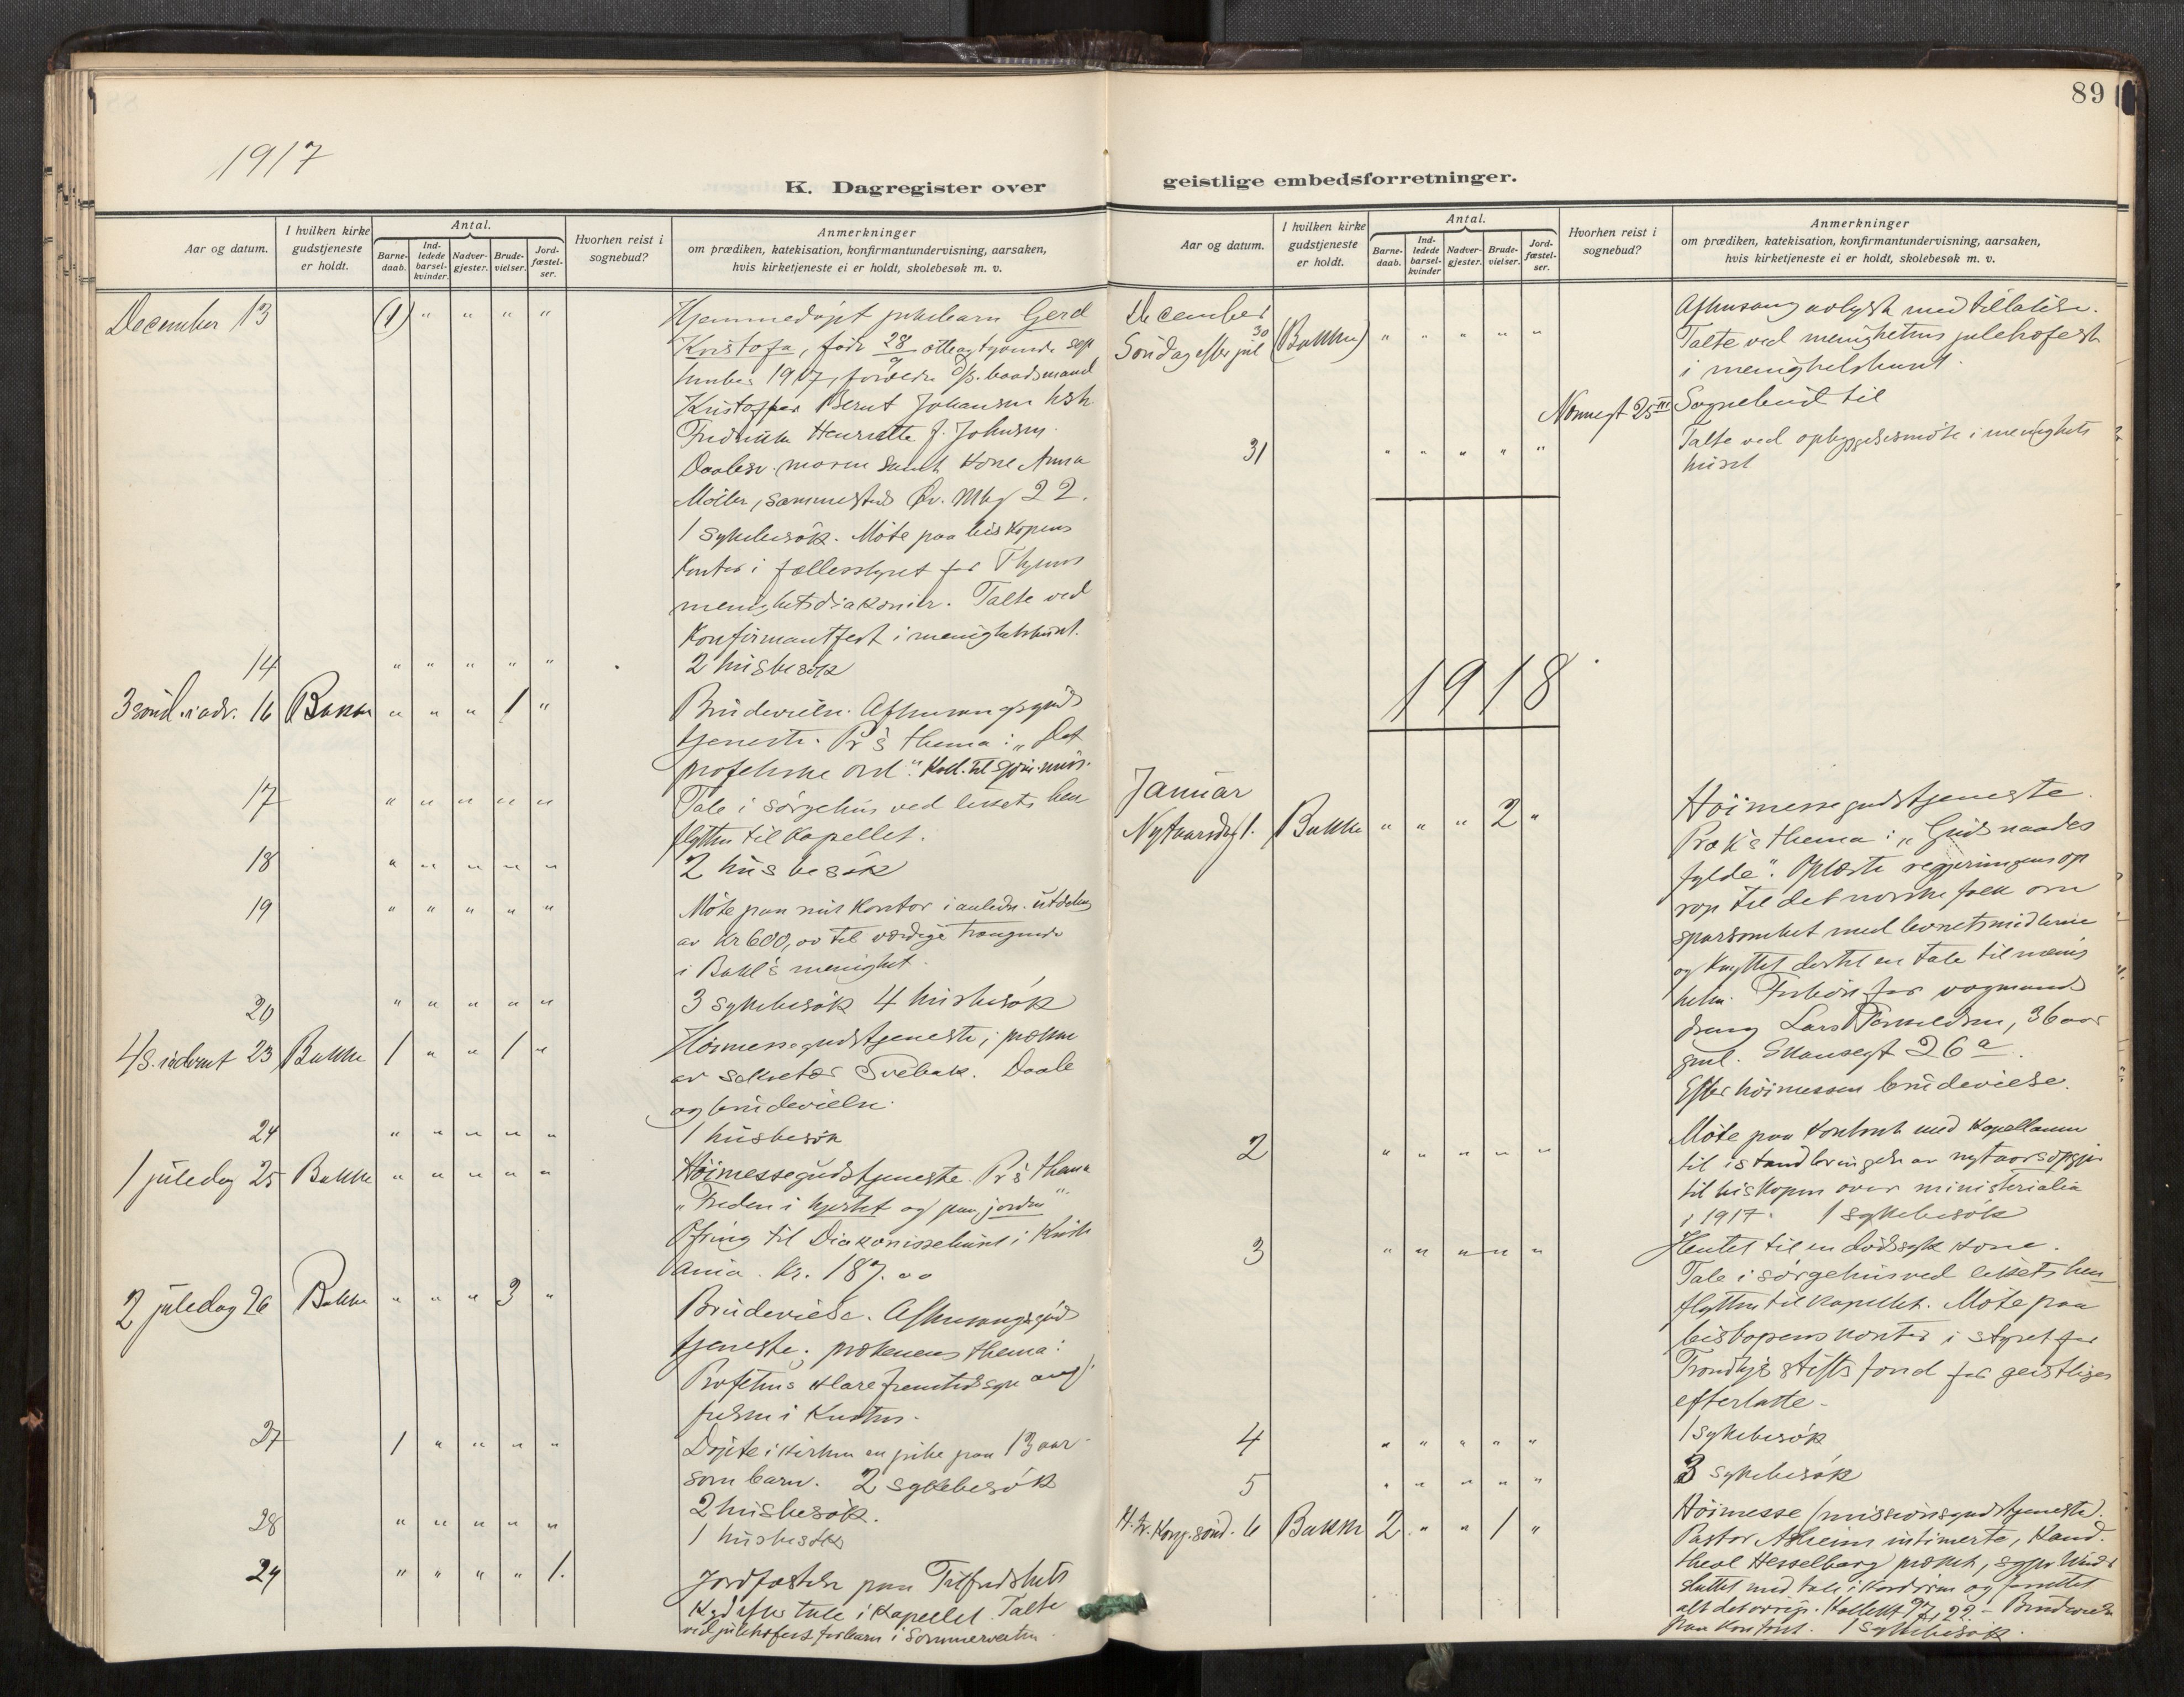 89
1917
K. Dagregister over
geistlige embedsforretninger.
Aar og datum.
I hvilken kirke gudstjeneste er holdt.
Antal.
Barne-daab.
Ind-ledede barsel-kvinder
Nadver-gjester.
Brude-vielser.
Jord-fæstel-ser.
Hvorhen reist i sognebud?
Anmerkninger
om prædiken, katekisation, konfirmantundervisning, aarsaken,
hvis kirketjeneste ei er holdt, skolebesøk m. v.
December 13 (1) " " " " Hjemmedøpt pikebarn Gerd
Kristofa, født 28 otteogtyvende sep
tember 1917, forældre
Kristoffer Bernt Johansen
Henriette J. Johnsen.
moren samt kone Anna
Møller, sammesteds Øv. Mbg 22.
1 sykebesøk. Møte paa biskopens
kontor i fællesstyret for Thjems
menighetsdiakonier. Talte ved
konfirmantfest i menighetshuset.
14 " " " " " 2 husbesøk
3 sønd. i adv. 16 Bakke " " " 1 " Brudevielse. Aftensangsguds
tjeneste. Pr's thema: „Det
profetiske ord".
17 " " " " " Tale i sørgehus ved likets hen
flytten til kapellet.
18 " " " " " 2 husbesøk
19 " " " " " Møte paa mit kontor i anledn. utdeling
av kr 600, til værdige trængende
i Bakl's menighet.
20 " " " " " 3 sykebesøk 4 husbesøk
4 s. i advent 23 Bakke 1 " " 1 " Høimessegudstjeneste; præken
av sekretær Svebak. Daab
og brudevielse.
24 " " " " " 1 husbesøk
1 juledag 25 Bakke " " " " " Høimessegudstjeneste. Pr's thema
„Freden i hjertet og paa jorden".
Ofring til Diakonissehuset i Kristi
ania. Kr. 187.00
2 juledag 26 Bakke " " " 3 " Brudevielse. Aftensangsguds
tjeneste; prækenens thema:
Profetens klare fremtidssyn
i Kristus.
27 1 " " " " Døpte i kirken en pike paa 13 aar
som barn. 2 sykebesøk
2 husbesøk.
28 " " " " " 1 husbesøk
29 " " " " 1. Jordfæstelse paa Tilfredshets
tale i kapellet. Talte
ved julefest for barn i Sommerveiten.
Aar og datum.
I hvilken kirke gudstjeneste er holdt.
Antal.
Barne-daab.
Ind-ledede barsel-kvinder
Nadver-gjester.
Brude-vielser.
Jord-fæstel-ser.
Hvorhen reist i sognebud?
Anmerkninger
om prædiken, katekisation, konfirmantundervisning, aarsaken,
hvis kirketjeneste ei er holdt, skolebesøk m. v.
December
30
Søndag efter jul (Bakke) " " " " " Aftensang avlyst med tillatelse.
Talte ved menighetens julefest
i menighetshuset.
Nonnegt 25 III Sognebud til
31 " " " " " Talte ved opbyggelsesmøte i menighets
huset
1918
Januar
Nytaarsdag 1. Bakke " " " 2 " Høimessegudstjeneste.
Præk's thema: „Guds naades
fylde". Oplæste regjeringens op
rop til det norske folk om
sparsomhet med levnetsmidlerne
og knyttet dertil en tale til menig
heten. Forbøn for vognmands
dreng Lars 36 aar
gml. Skansegt 26 a.
Efter høimessen brudevielse.
2 " " " " " Møte paa kontoret med kapellanen
til istandbringelse av nytaarsopgjør
til biskopen over ministerialia
i 1917. 1 sykebesøk
3 " " " " " Hentet til en dødssyk kone.
Tale i sørgehus ved likets hen
flytten til kapellet. Møte paa
biskopens kontor i styret for
Trondhjs stifts fond for geistliges
efterlatte.
4 " " " " " 1 sykebesøk
5 " " " " " 3 sykebesøk
H. tr. kong. sønd. 6 Bakke 2 " " 1 " Høimesse (missionsgudstjeneste).
Pastor intimerte, Kand.
theol Hesselberg
sluttet med tale i kordøren og forrettet
alt det øvrige. Kollekt 97,22. – Brudevielse
paa kontoret. 1 sykebesøk.